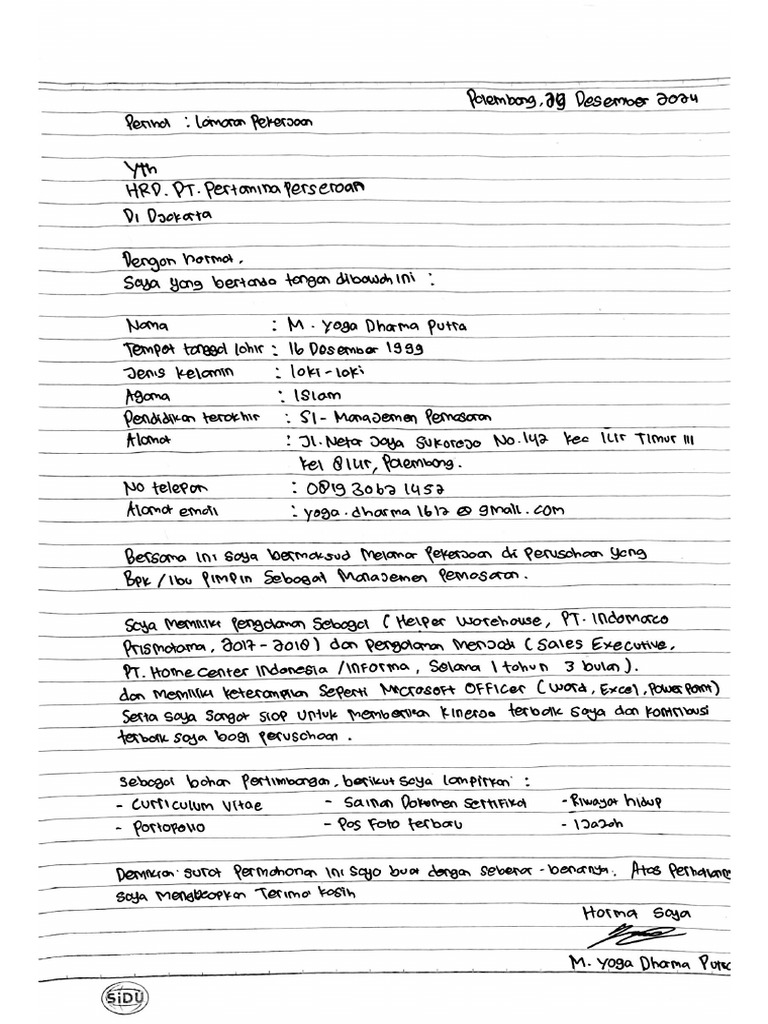 Palembang, 29 Desember 2024
Perihal : Lamaran Pekerjaan
Yth
HRD. PT. Pertamina Perseroan
Di Djakarta
Dengan hormat,
Saya yang bertanda tangan dibawah ini :
Nama : M. Yoga Dharma Putra
Tempat tanggal lahir : 16 Desember 1999
Jenis kelamin : laki-laki
Agama : Islam
Pendidikan terakhir : S1- Manajemen Pemasaran
Alamat : Jl. Neta Jaya Sukorejo No.142 kec Ilir Timur III
kel 8 Ilir, Palembang.
No telepon : 0819 3062 1452
Alamat email : yoga.dharma1612@gmail.com
Bersama ini saya bermaksud melamar pekerjaan di perusahaan yang
Bpk / Ibu Pimpin Sebagai Manajemen Pemasaran.
Saya memiliki pengalaman sebagai ( Helper Warehouse, PT. Indomarco
Prismatama, 2017-2018) dan pengalaman menjadi ( Sales Executive,
PT. Home Center Indonesia / Informa, Selama 1 tahun 3 bulan ).
dan memiliki keterampilan seperti Microsoft Officer ( Word, Excel, PowerPoint)
Serta saya sangat siap untuk memberikan kinerja terbaik saya dan kontribusi
terbaik saya bagi perusahaan .
Sebagai bahan pertimbangan, berikut saya lampirkan :
- Curriculum Vitae - Salinan Dokumen Sertifikat - Riwayat hidup
- Portopolio - Pas Foto terbaru - Ijazah
Demikian surat permohonan ini saya buat dengan sebenar-benarnya. Atas
saya mengucapkan Terima kasih
Hormat saya
M. Yoga Dharma Putra
SiDU